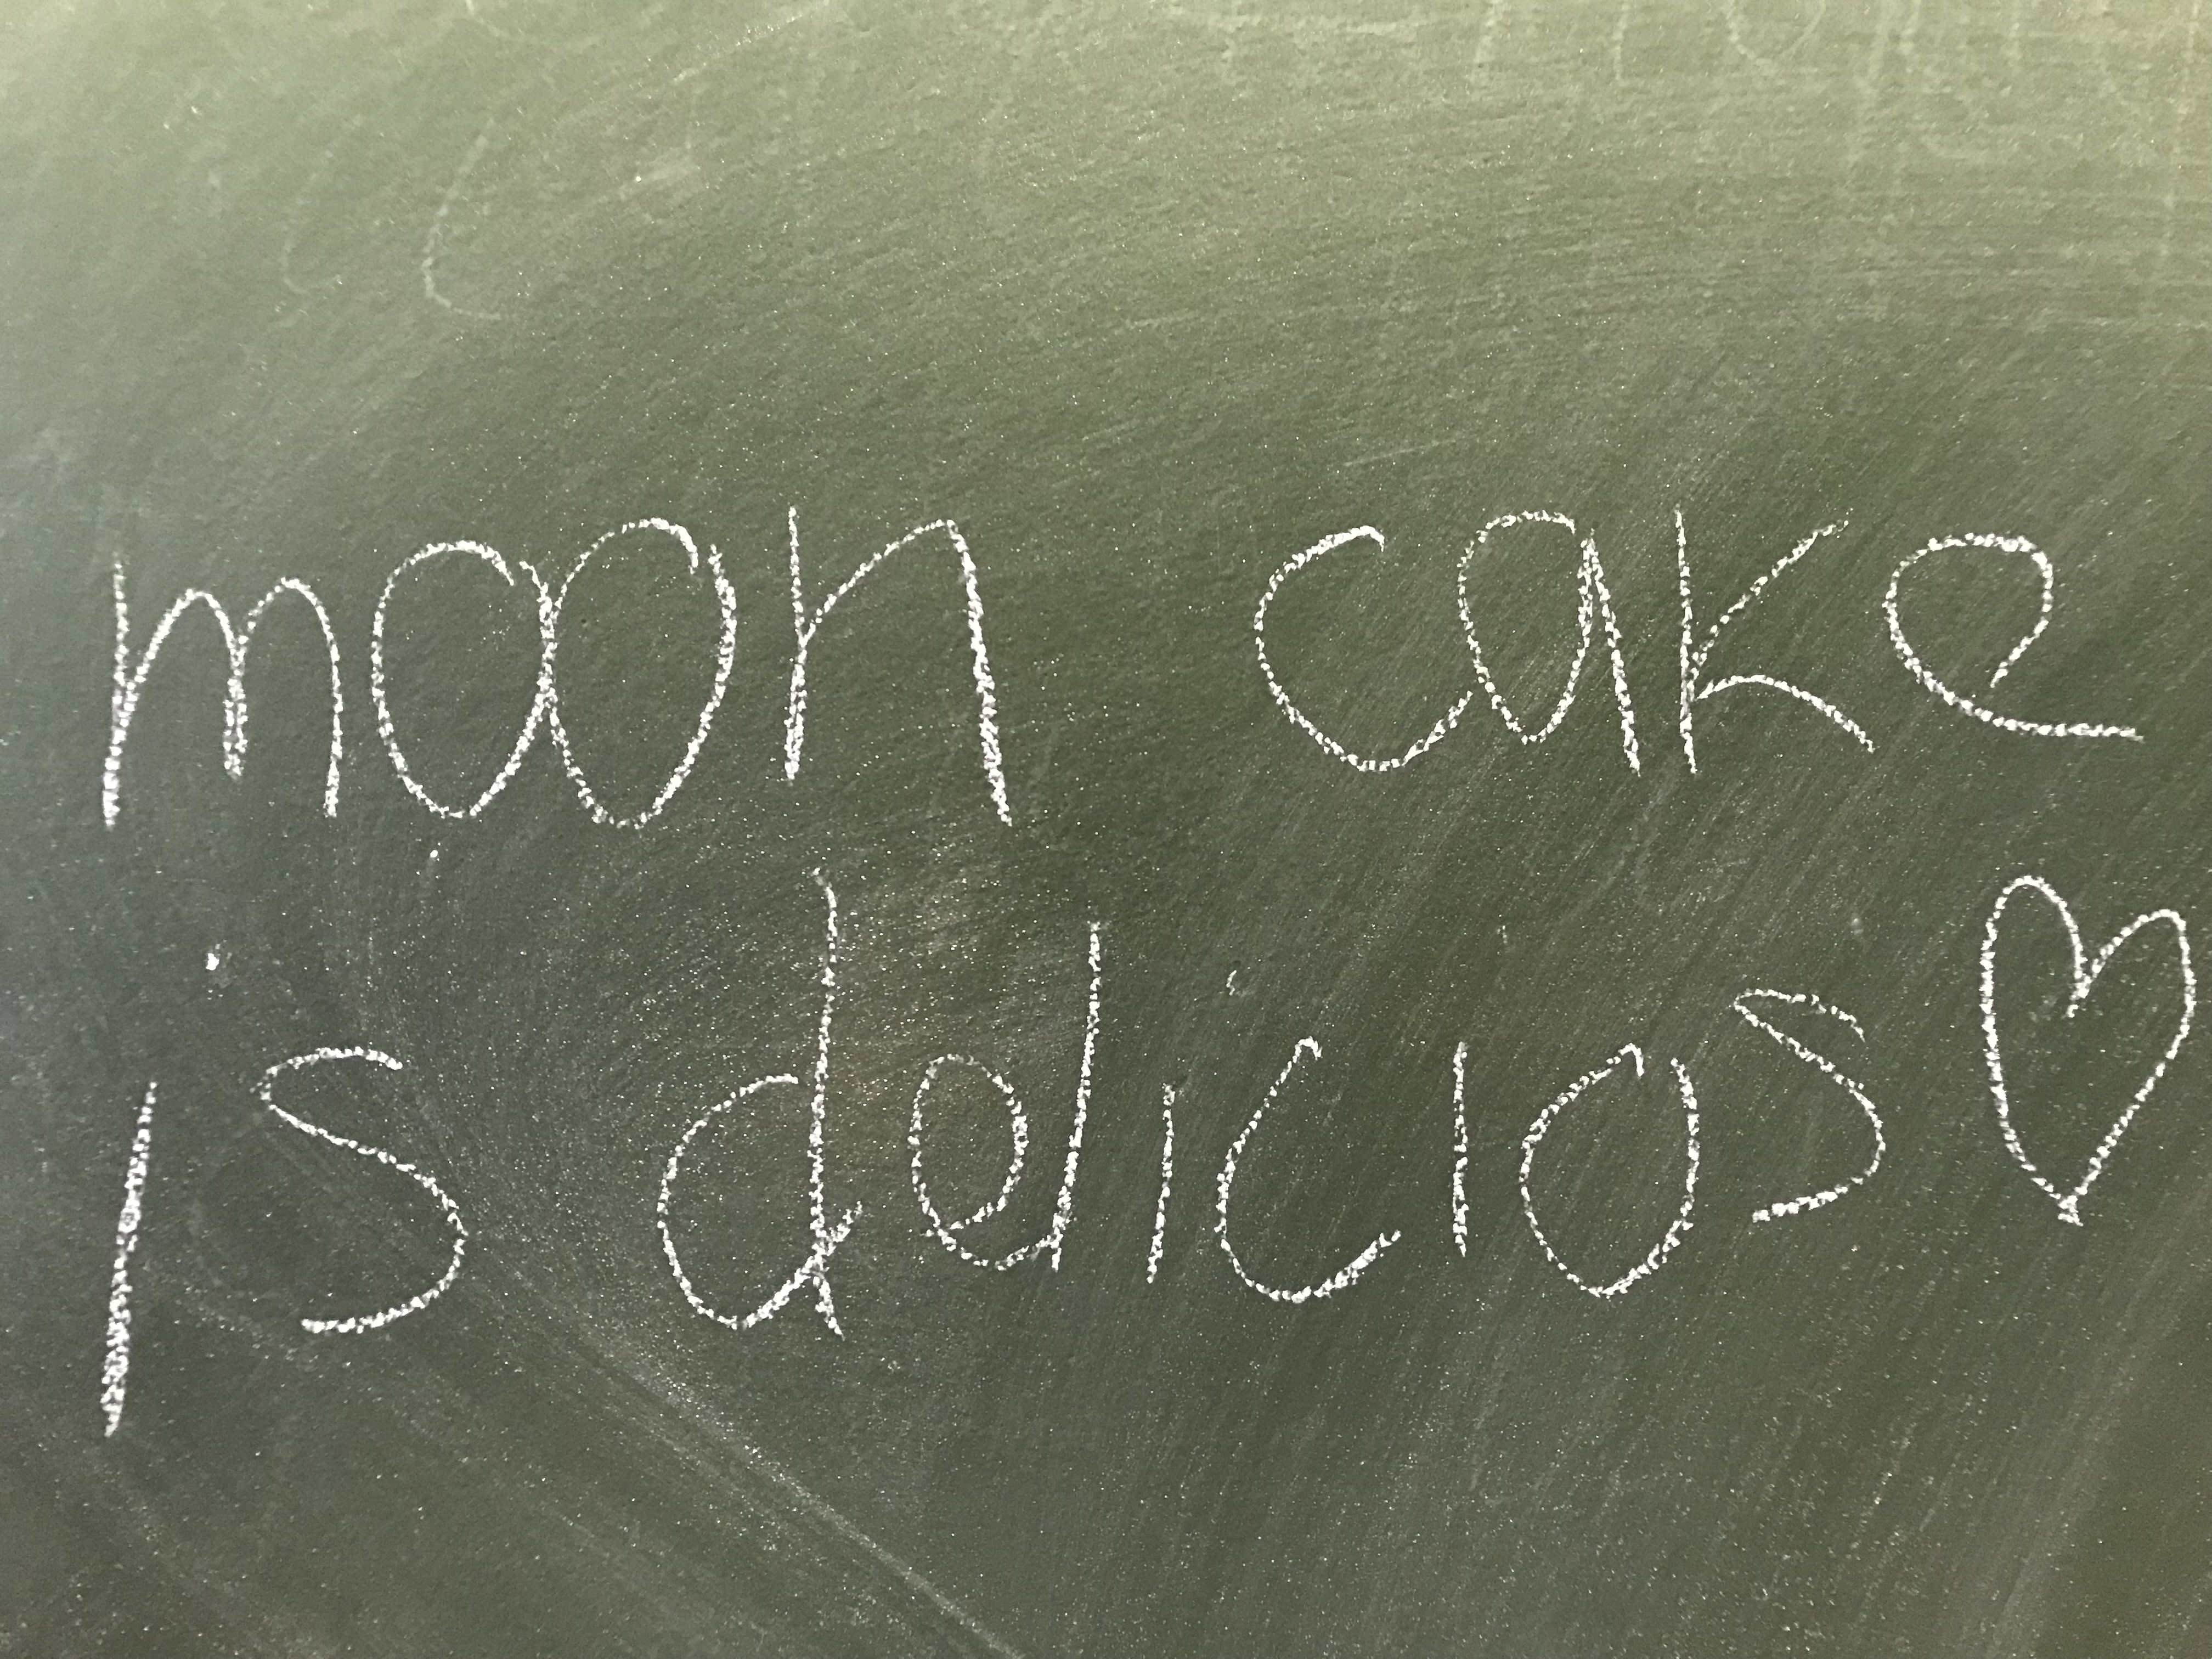 moon cake
is delicios♡